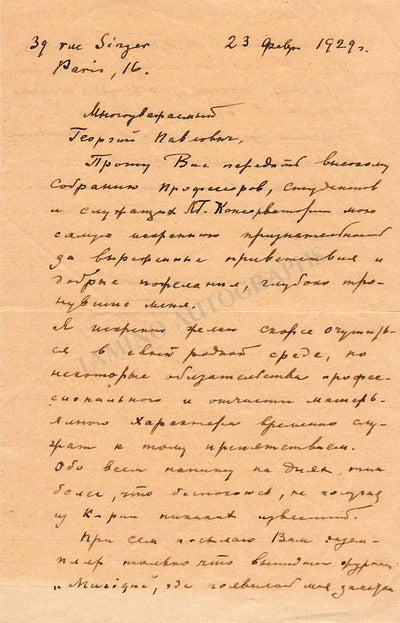 39 rue Singer 23 Февр 1929 г.
Paris, 16.
Многоуважаемый
Георгий Павлович,
Прошу Вас передать высокому
собранию профессоров, студентов
и служащих Тб. Консерватории мою
самую искреннюю признательность
за выраженные приветствия и
добрые пожелания, глубоко тро-
нувшие меня.
Я искренно желаю скорее очутить-
ся в своей родной среде, но
некоторые обязательства профес-
сионального и отчасти матерь-
яльного характера временно слу-
жат к тому препятствием.
Обо всем напишу на днях, тем
более, что беспокоюсь, не получая
из К-рии никаких известий.
При сем посылаю Вам экзем-
пляр только что вышедшего журнала
"Мелодия", где появилась моя заметка
TAMINO AUTOGRAPHS